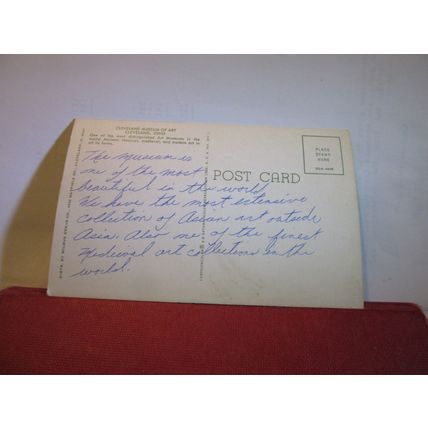 CLEVELAND MUSEUM OF ART
CLEVELAND, OHIO
One of the most distinguished Art Museums in the
world. Ancient, classical, medieval, and modern art in
all its forms.
The museum is
one of the most
beautiful in the world
We have the most extensive
collection of Asian art outside
Asia. Also one of the finest
Medieval art collections in the
world.
POST CARD
PLACE
STAMP
HERE